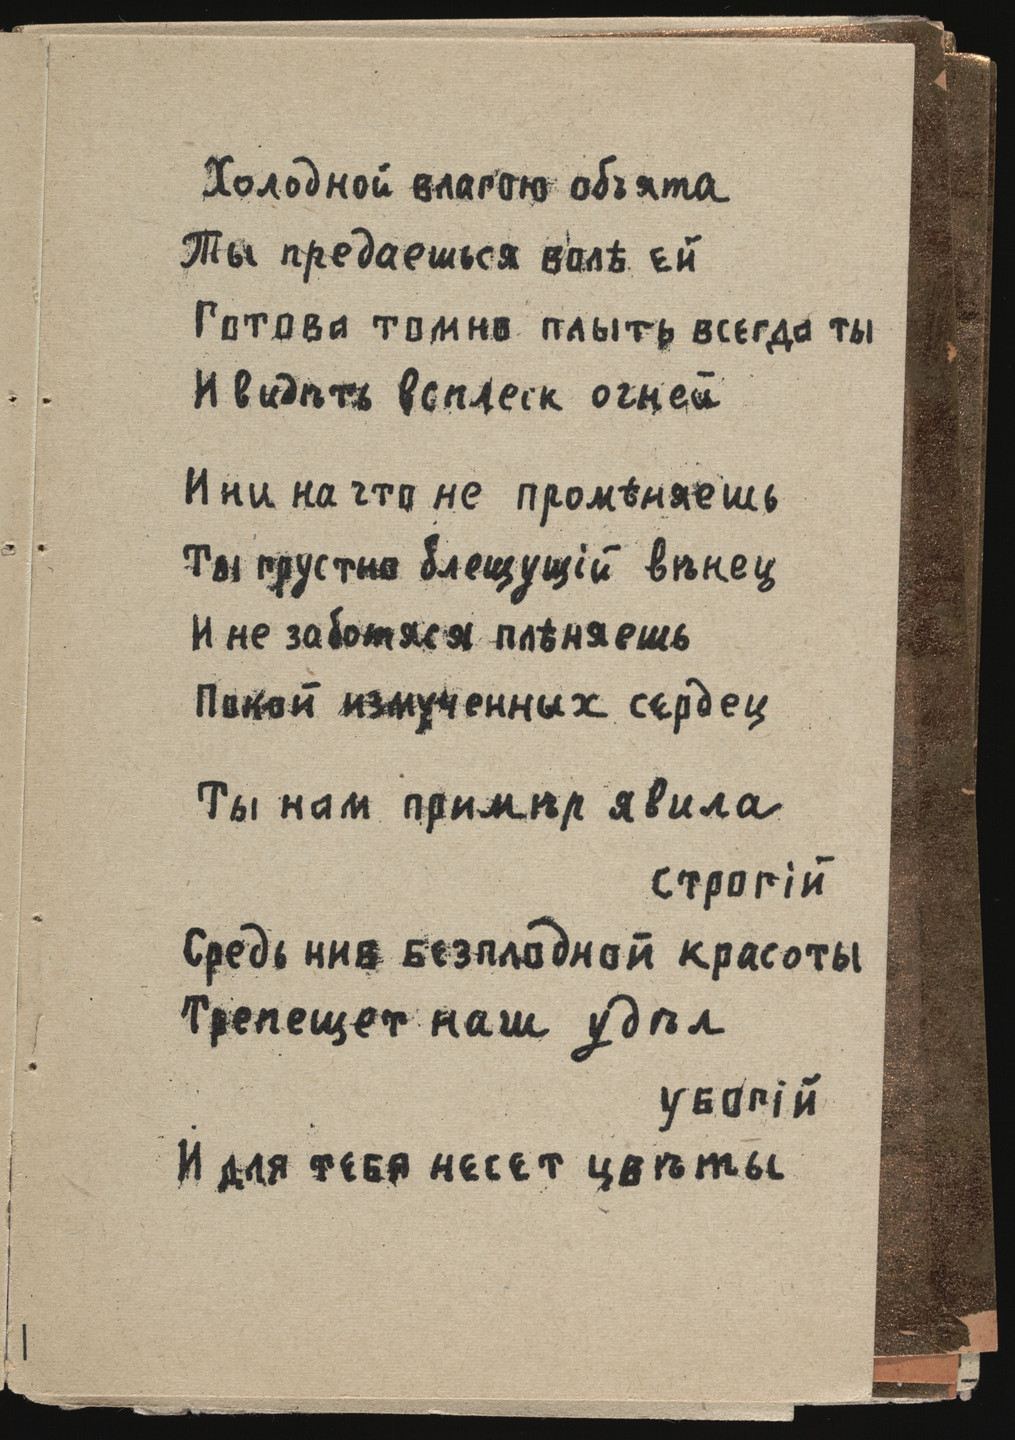 Холодной влагою объята
Ты предаешься волѣ ей
Готова томно плыть всегда ты
И видѣть всплеск огней
И ни на что не промѣняешь
Ты грустно блещущій вѣнец
И не заботяся плѣняешь
Покой измученных сердец
Ты нам примѣр явила
строгій
Средь нив безплодной красоты
Трепещет наш удѣл
убогій
И для тебя несет цвѣты